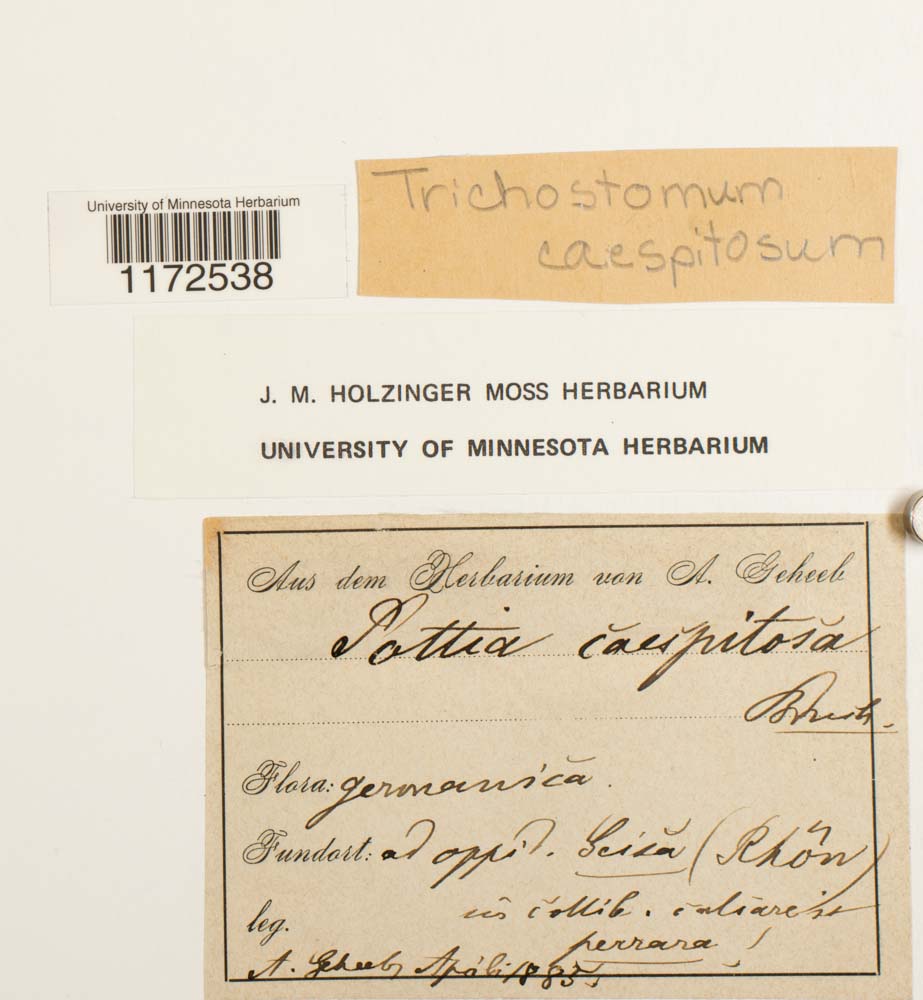 University of Minnesota Herbarium
1172538
Trichostomum
caespitosum
J. M. HOLZINGER MOSS HERBARIUM
UNIVERSITY OF MINNESOTA HERBARIUM
Aus dem Herbarium von A. Geheeb
Pottia caespitosa
Bruch.
Flora: germanica.
Fundort: ad oppid. Geisa (Rhön)
in collib. calcareis
perrara!
leg.
A. Geheeb, April 1883.